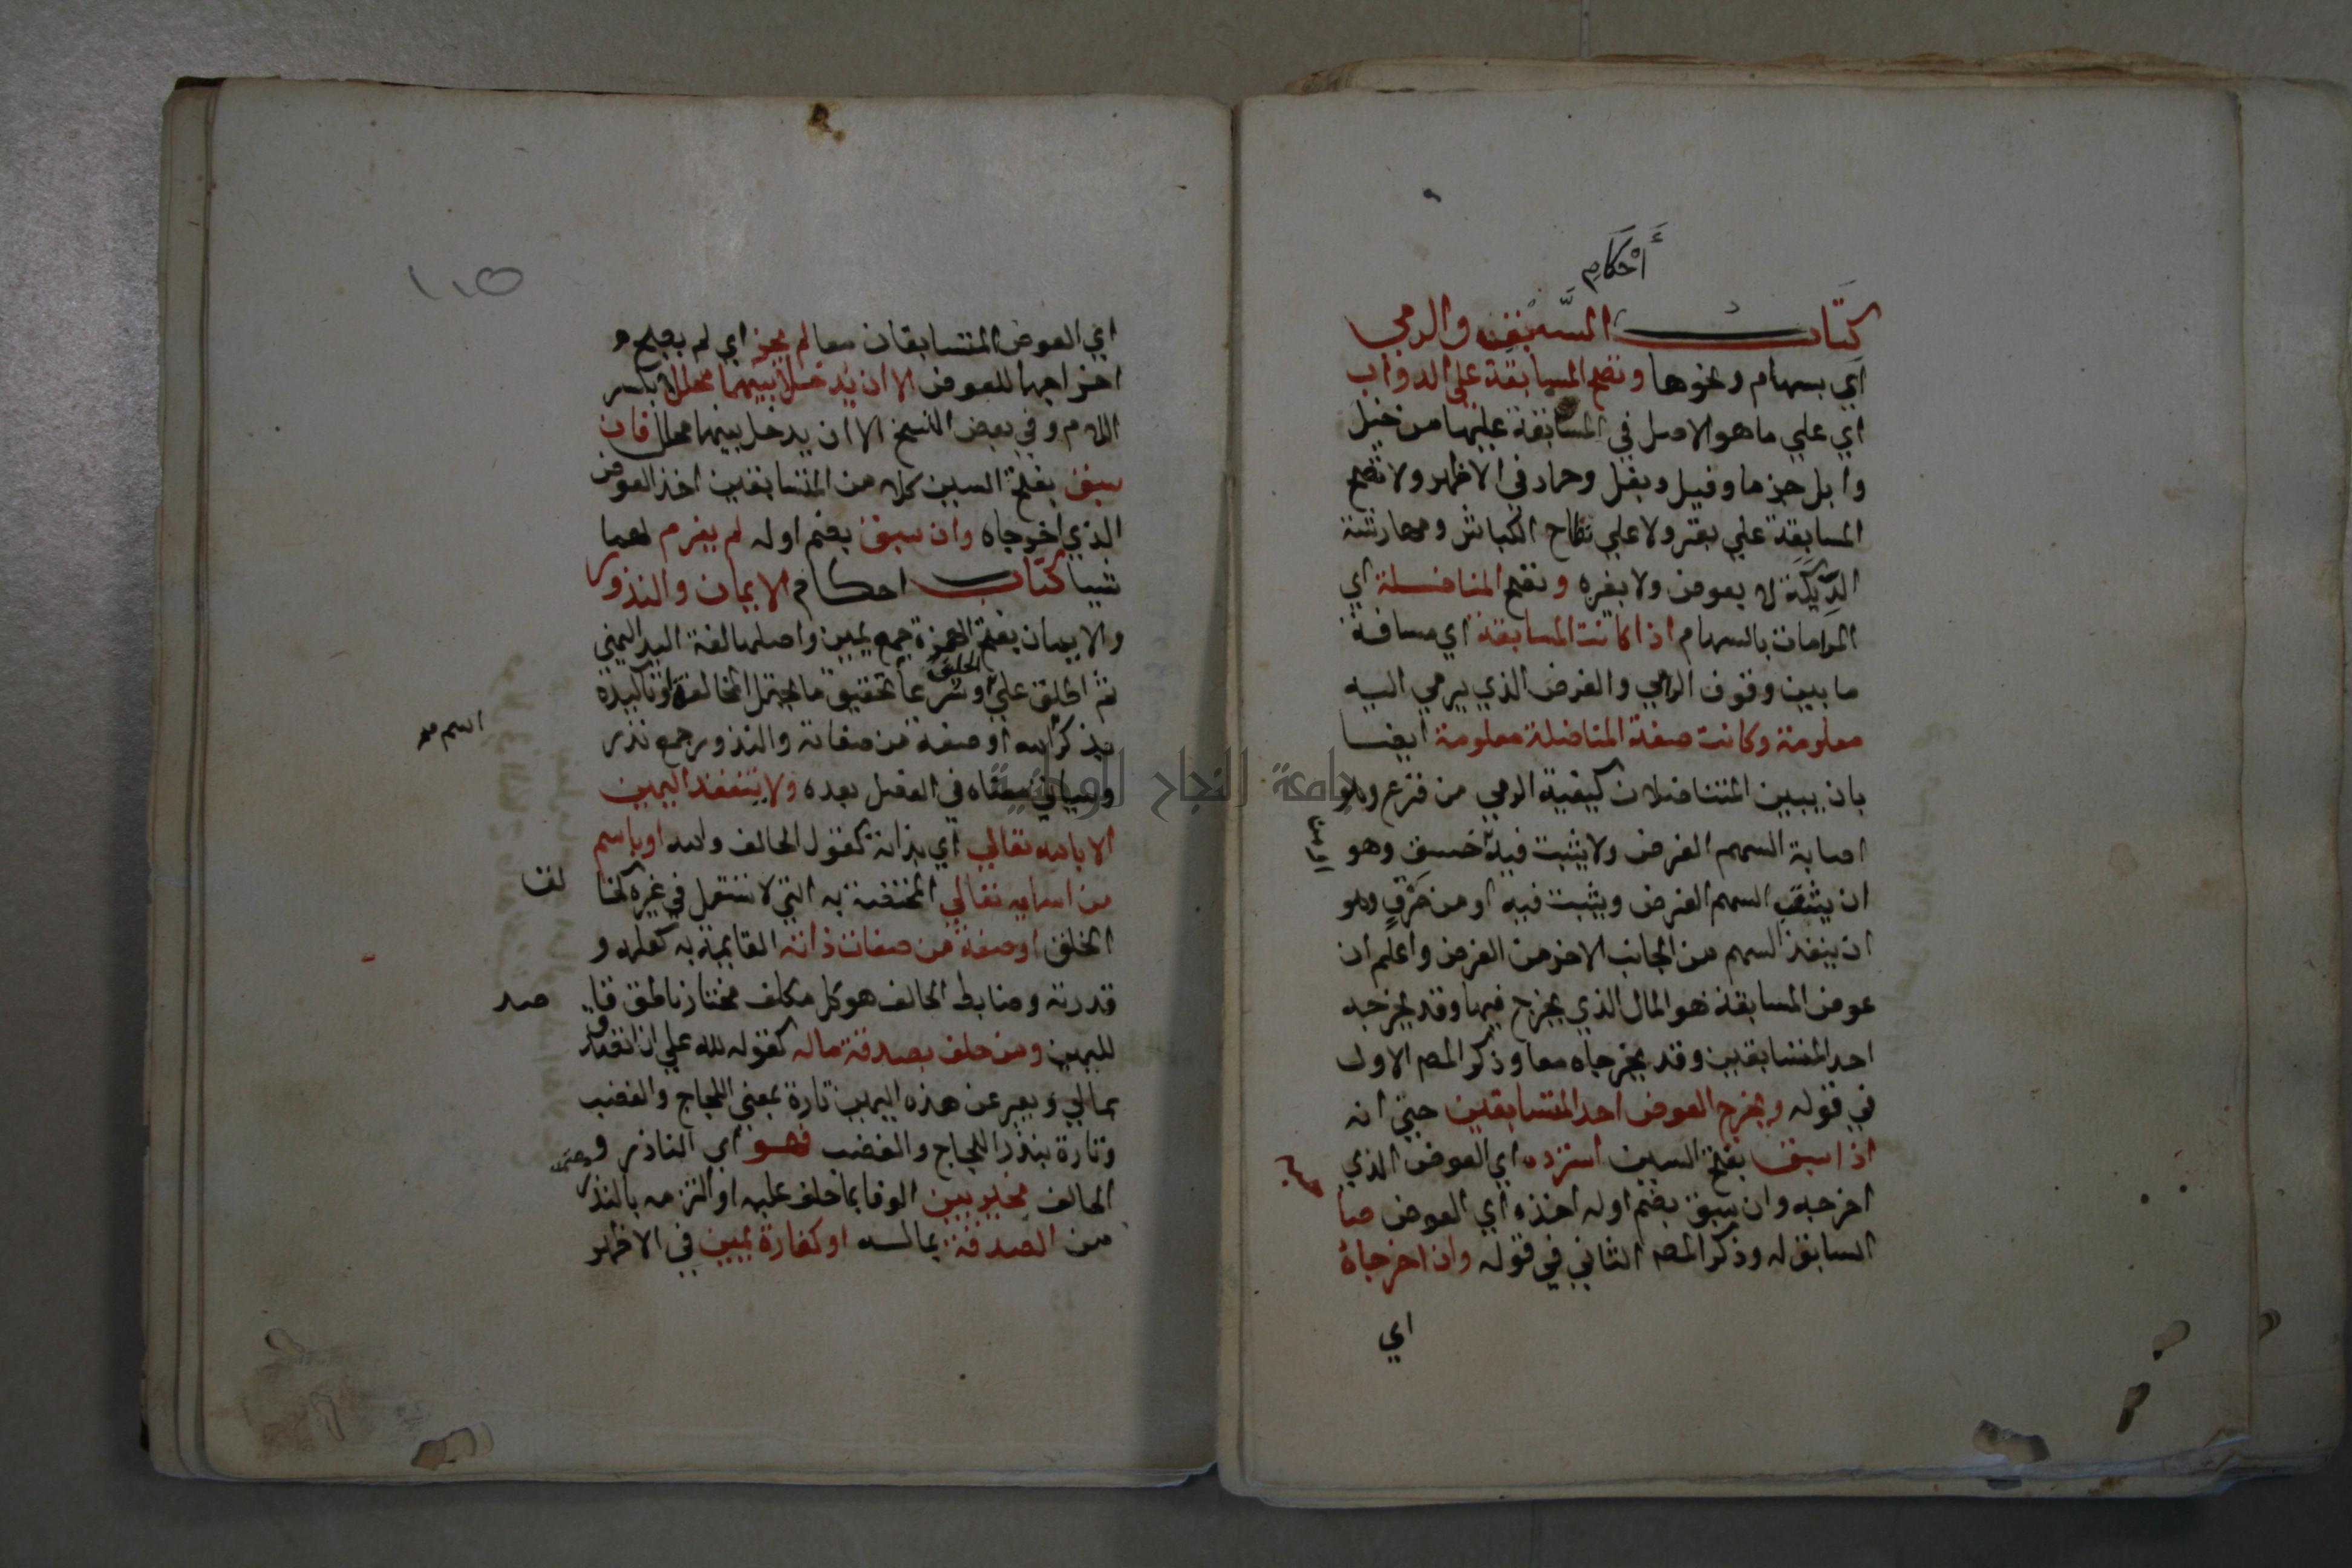 أحكام
كتاب السَّبْق والرمي
اي بسهام ونحوها وتصح المسابقة علي الدواب
اي علي ما هو الاصل في المسابقة عليها من خيل
وابل جزما وفيل وبغل وحمار في الاظهر ولا تصح
المسابقة علي بقر ولا علي نطاح الكباش ومهارشة
الديكة لا بعوض ولا بغيره وتصح المناضلة اي
المرامات بالسهام اذا كانت المسابقة اي مسافة
ما بين وقوف الرامي والغرض الذي يرمي اليه
معلومة وكانت صفة المناضلة معلومة ايضا
بان يبين المتناضلان كيفية الرمي من قرع وهو
اصابة السهم الغرض ولا يثبت فيه خسق وهو
ان يثقب السهم الغرض ويثبت فيه او من خرق وهو
ان ينفذ السهم من الجانب الاخر من الغرض واعلم ان
عوض المسابقة هو المال الذي يخرج فيها وقد يخرجه
احد المتسابقين وقد يخرجاه معا وذكر المص الاول
في قوله ويخرج العوض احد المتسابقين حتي انه
اذا سبق بفتح السين استرده اي العوض الذي
اخرجه وان سبق بضم اوله اخذه اي العوض صا
السابق له وذكر المص الثاني في قوله وان اخرجاه
اي
١٠٥
اي العوض المتسابقان معا لم يجز اي لم يصح و
اخراجها للعوض الا ان يدخلا بينهما محللا بكسر
اللام وفي بعض النسخ الا ان يدخل بينهما محلل فان
سبق بفتح السين كلا من المتسابقين اخذ العوض
الذي اخرجاه وان سبق بضم اوله لم يغرم لهما
شيا كتاب احكام الايمان والنذور
والايمان بفتح الهمزة جمع يمين واصلها لغة اليد اليمني
ثم اطلق علي الحلف وشرعا تحقيق ما يحتمل المخالفة او تاكيده
بذكر الله او صفة من صفاته والنذور جمع نذر
وسياتي معناه في الفصل بعده ولا ينعقد اليمين
الا بالله تعالي اي بذاته كقول الحالف والله او باسم
من اسمايه تعالي المختصة به التي لا تستعمل في غيره كخا
لق
الخلق او صفة من صفات ذاته القايمة به كعلمه و
قدرته وضابط الحالف هو كل مكلف مختار ناطق قا
صد
لليمين ومن حلف بصدقة ماله كقوله لله علي ان اتصدق
بمالي ويعبر عن هذه اليمين تارة بمعني اللجاج والغضب
وتارة بنذر اللجاج والغضب فهو اي الناذر و
الحالف مخير بين الوفا بما حلف عليه او التزمه بالنذر
من الصدقة بماله او كفارة يمين في الاظهر
جامعة النجاح الوطنية